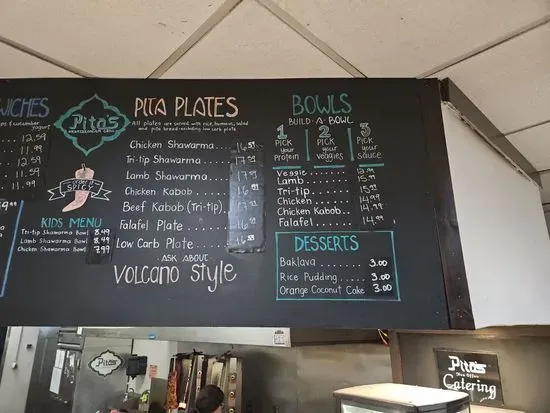 WICHES
& cucumber
Yogurt
12.59
11.99
12.59
11.99
11.99
Pita's
MEDITERRANEAN GRILL
SPICY
KIDS MENU
Tri-tip Shawarma Bowl 8.49
Lamb Shawarma Bowl 8.49
Chicken Shawarma Bowl 7.99
PITA PLATES
All plates are served with rice, hummus, salad
and pita bread - excluding low carb plate
Chicken Shawarma
Tri-tip Shawarma
Lamb Shawarma
Chicken Kabob
Beef Kabob (Tri-tip)
Falafel Plate
Low Carb Plate
ASK ABOUT
VOLCANO STYLE
BOWLS
BUILD-A-BOWL
1 2 3
PICK your Protein
PICK your veggies
PICK your sauce
Veggie
Lamb 15.99
Tri-tip 15.99
Chicken 14.99
Chicken Kabob 14.99
Falafel 14.99
DESSERTS
Baklava 3.00
Rice Pudding 3.00
Orange Coconut Cake 3.00
Pita's
Pita's
Now Offers
Catering